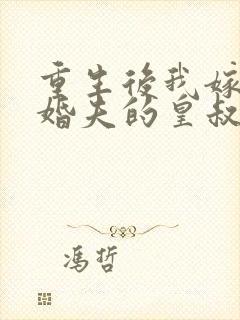 重生後我嫁
婚夫的皇叔
馮哲